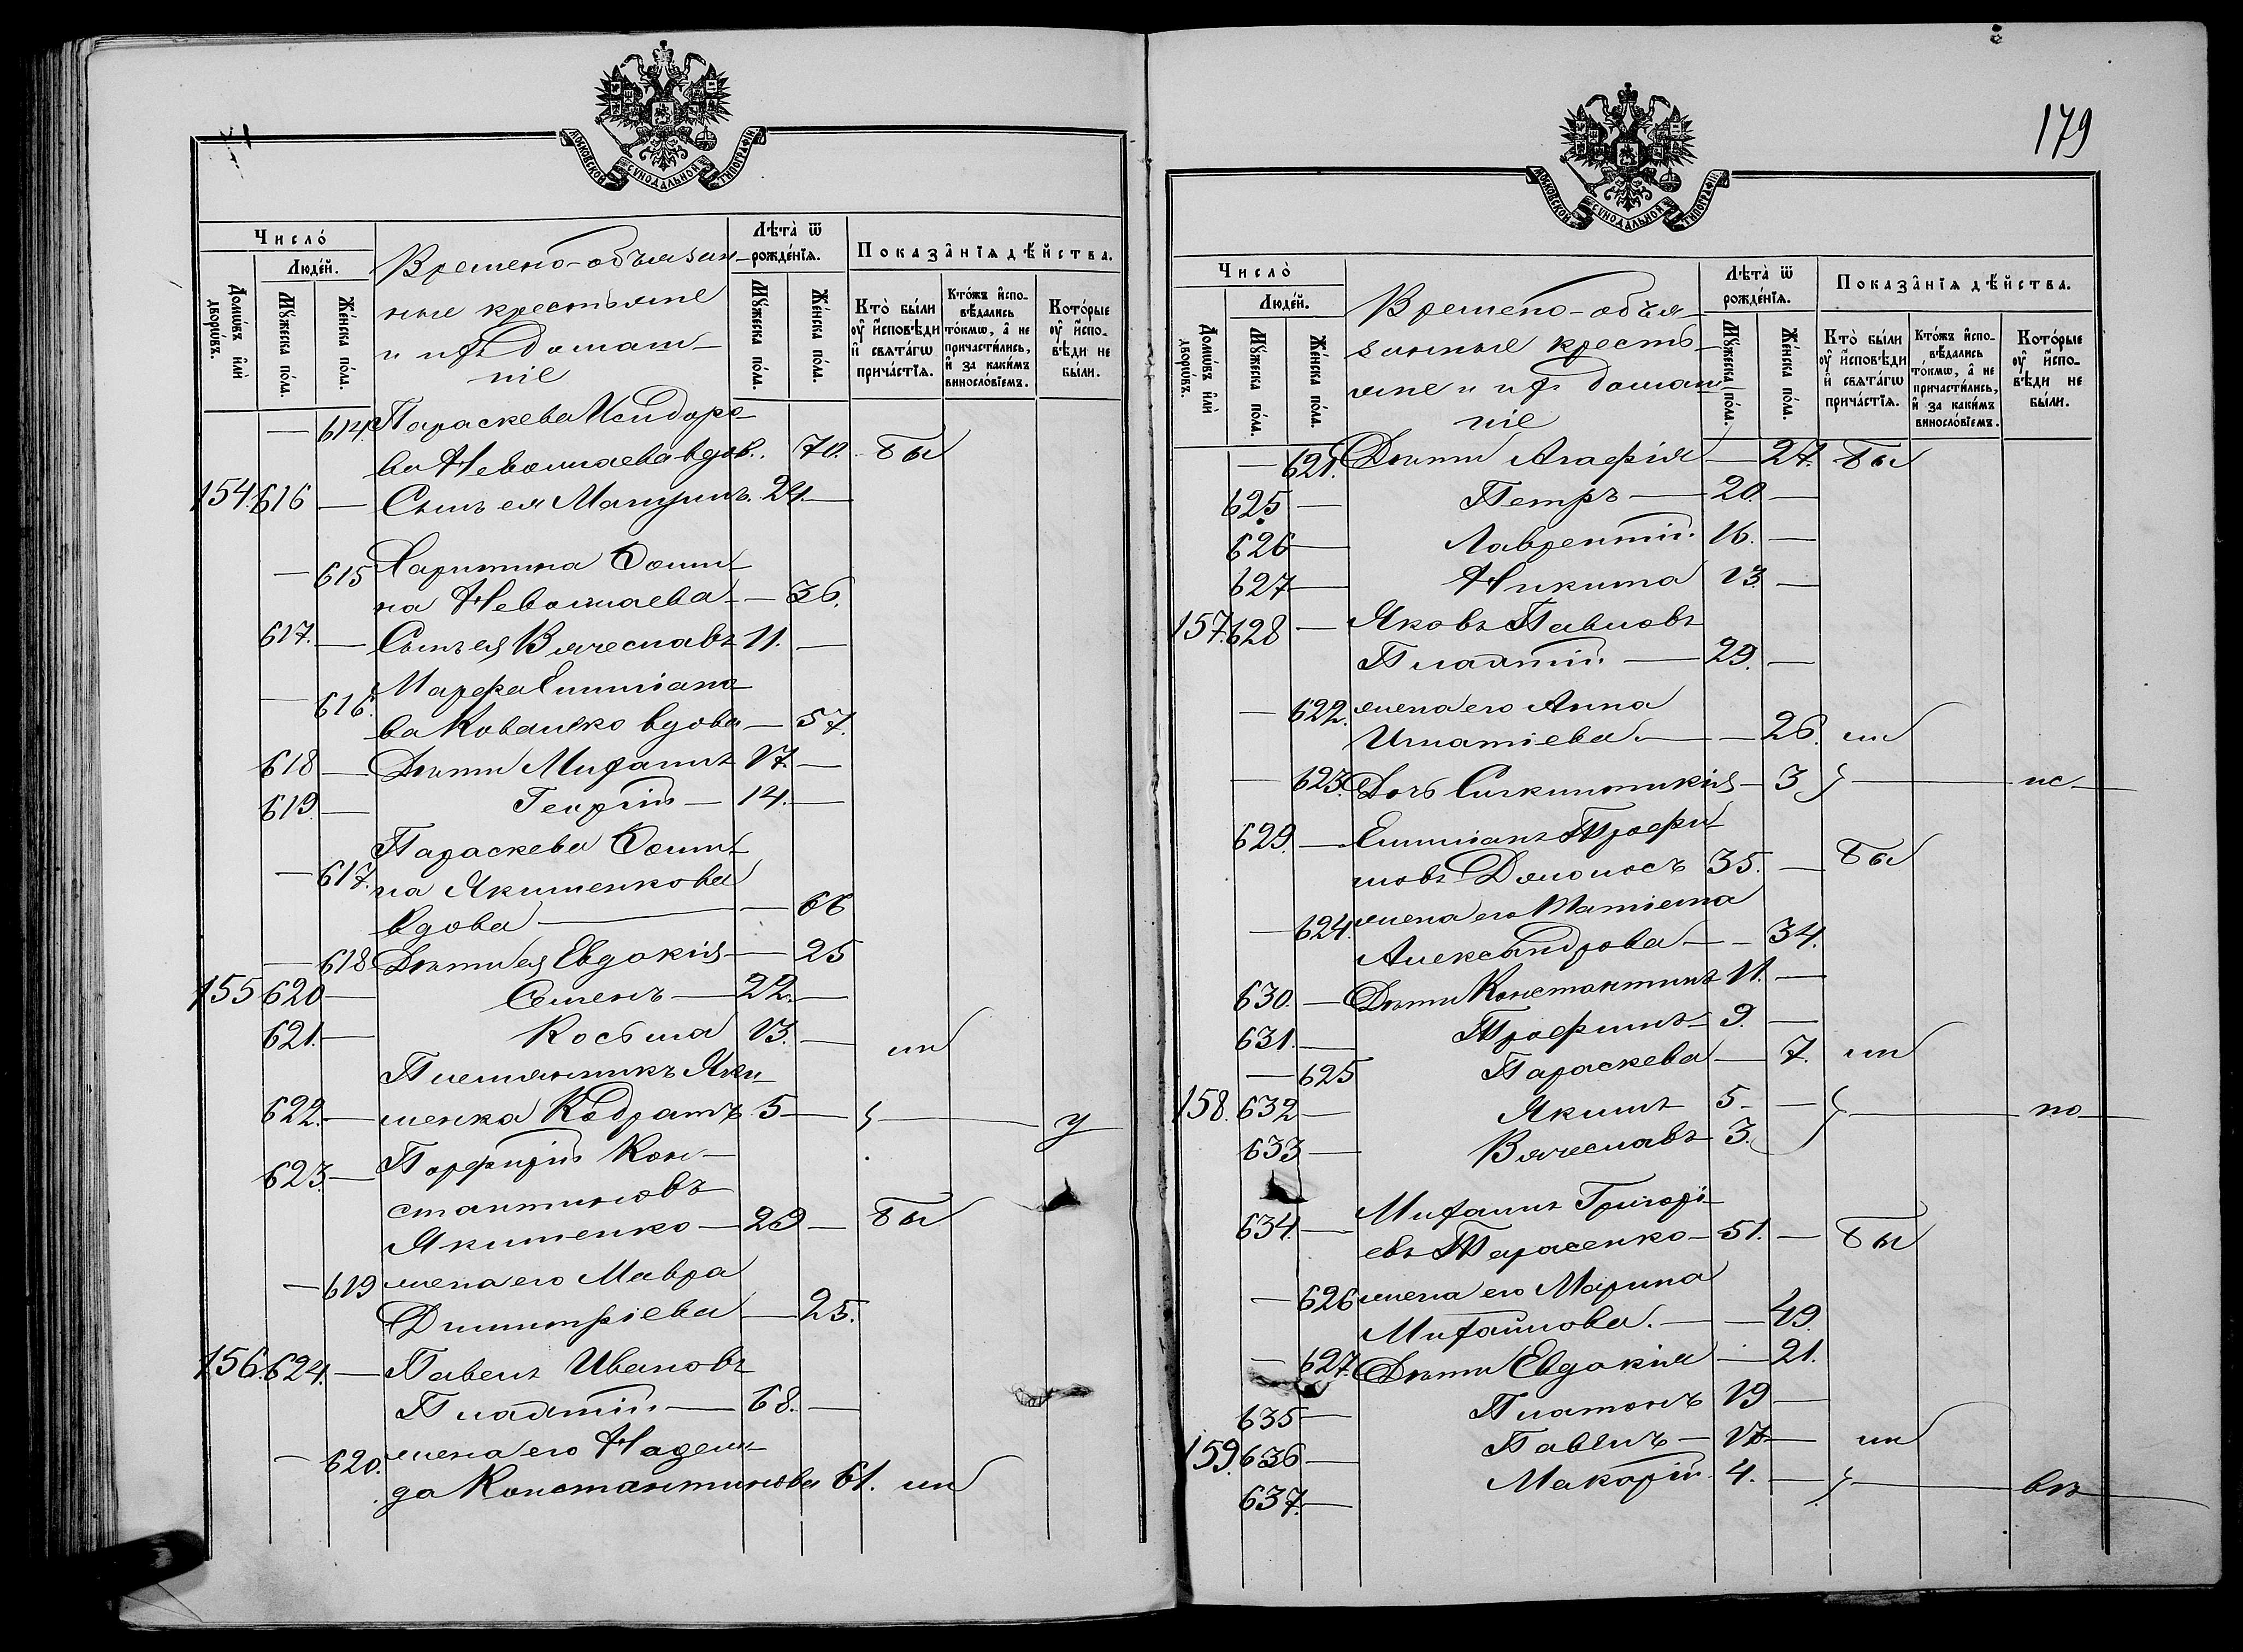 МОСКОВСКОЙ СѴНОДАЛЬНОЙ ТИПОГРАФІИ
Число̀
Людéй.
Домѡ́въ и҆лѝ дворѡ́въ.
Мꙋ́жеска по́ла.
Же́нска по́ла.
Времено-объязан-
ные крестьяне
и ихъ домаш-
ніе
Лѣта̀ ѿ рожде́нїѧ.
Мꙋ́жеска по́ла.
Же́нска по́ла.
Показа̑нїѧ дѣ́йства.
Кто̀ бы́ли оу҆ и҆сповѣ́ди и҆ свѧта́гѡ прича́стїѧ.
Кто́жъ и҆спо-вѣ́дались то́кмѡ, а҆ не причасти́лись, и҆ за каки́мъ винослóвїемъ.
Кото́рые оу҆ и҆спо-вѣ́ди не бы́ли.
— 614 Параскева Исидоро-
ва Неволшаева вдов. 70. бы
154. 616 — Сынъ ея Мартинъ. 24. —
— 615 Харитина Осипи-
на Неволшаева — 36.
617. — Сынъ ея Вячеславъ 11. —
— 616. Марфа Емиліано-
ва Коваленко вдова — 57.
618 — Дѣти Михаилъ 17. —
619. — Георгій — 14. —
— 617. Параскева Осипи-
на Якименкова
вдова — 66
— 618 Дѣти ея Евдокія — 25
155 620 — Семенъ — 22. —
621. — Косьма 13. — ли
Племянникъ Яки-
622. — менка Кодратъ 5 — у
623. — Порфирій Кон-
стантиновъ
Якименко — 29 — бы
— 619 жена его Мавра
Димитріева — 25.
156. 624. — Павелъ Ивановъ
Плахтій — 68. —
— 620. жена его Надеж-
да Константинова 61. ли
179
МОСКОВСКОЙ СѴНОДАЛЬНОЙ ТИПОГРАФІИ
Число̀
Людéй.
Домѡ́въ и҆лѝ дворѡ́въ.
Мꙋ́жеска по́ла.
Же́нска по́ла.
Времено-объя-
занные кресть-
яне и ихъ домаш-
ніе
Лѣта̀ ѿ рожде́нїѧ.
Мꙋ́жеска по́ла.
Же́нска по́ла.
Показа̑нїѧ дѣ́йства.
Кто̀ бы́ли оу҆ и҆сповѣ́ди и҆ свѧта́гѡ прича́стїѧ.
Кто́жъ и҆спо-вѣ́дались то́кмѡ, а҆ не причасти́лись, и҆ за каки́мъ винослóвїемъ.
Кото́рые оу҆ и҆спо-вѣ́ди не бы́ли.
— 621. Дѣти Агафія — 27. бы
625 — Петръ — 20. —
626 — Лаврентій. 16. —
627 — Никита 13. —
157. 628 — Яковъ Павловъ
Плахтій. — 29. —
— 622. жена его Анна
Игнатіева. — 26. ли
— 623. Дочь Синклитикія — 3 — не
629. — Емиліанъ Трофи-
мовъ 35. — бы
— 624. жена его Татіена
Александрова — 34.
630. — Дѣти Константинъ 11. —
631. — Трофимъ 9. —
— 625 Параскева — 7. ли
158. 632 — Якимъ 5 — — по
633 — Вячеславъ 3.
634. — Михаилъ Григорі-
евъ Тарасенко — 51. — бы
— 626 жена его Марина
Михайлова. — 49.
— 627. Дѣти Евдокія — 21.
635 — Платонъ 19 —
159. 636 — Павелъ — 17 — ли
637. — Макарій. 4. — въ